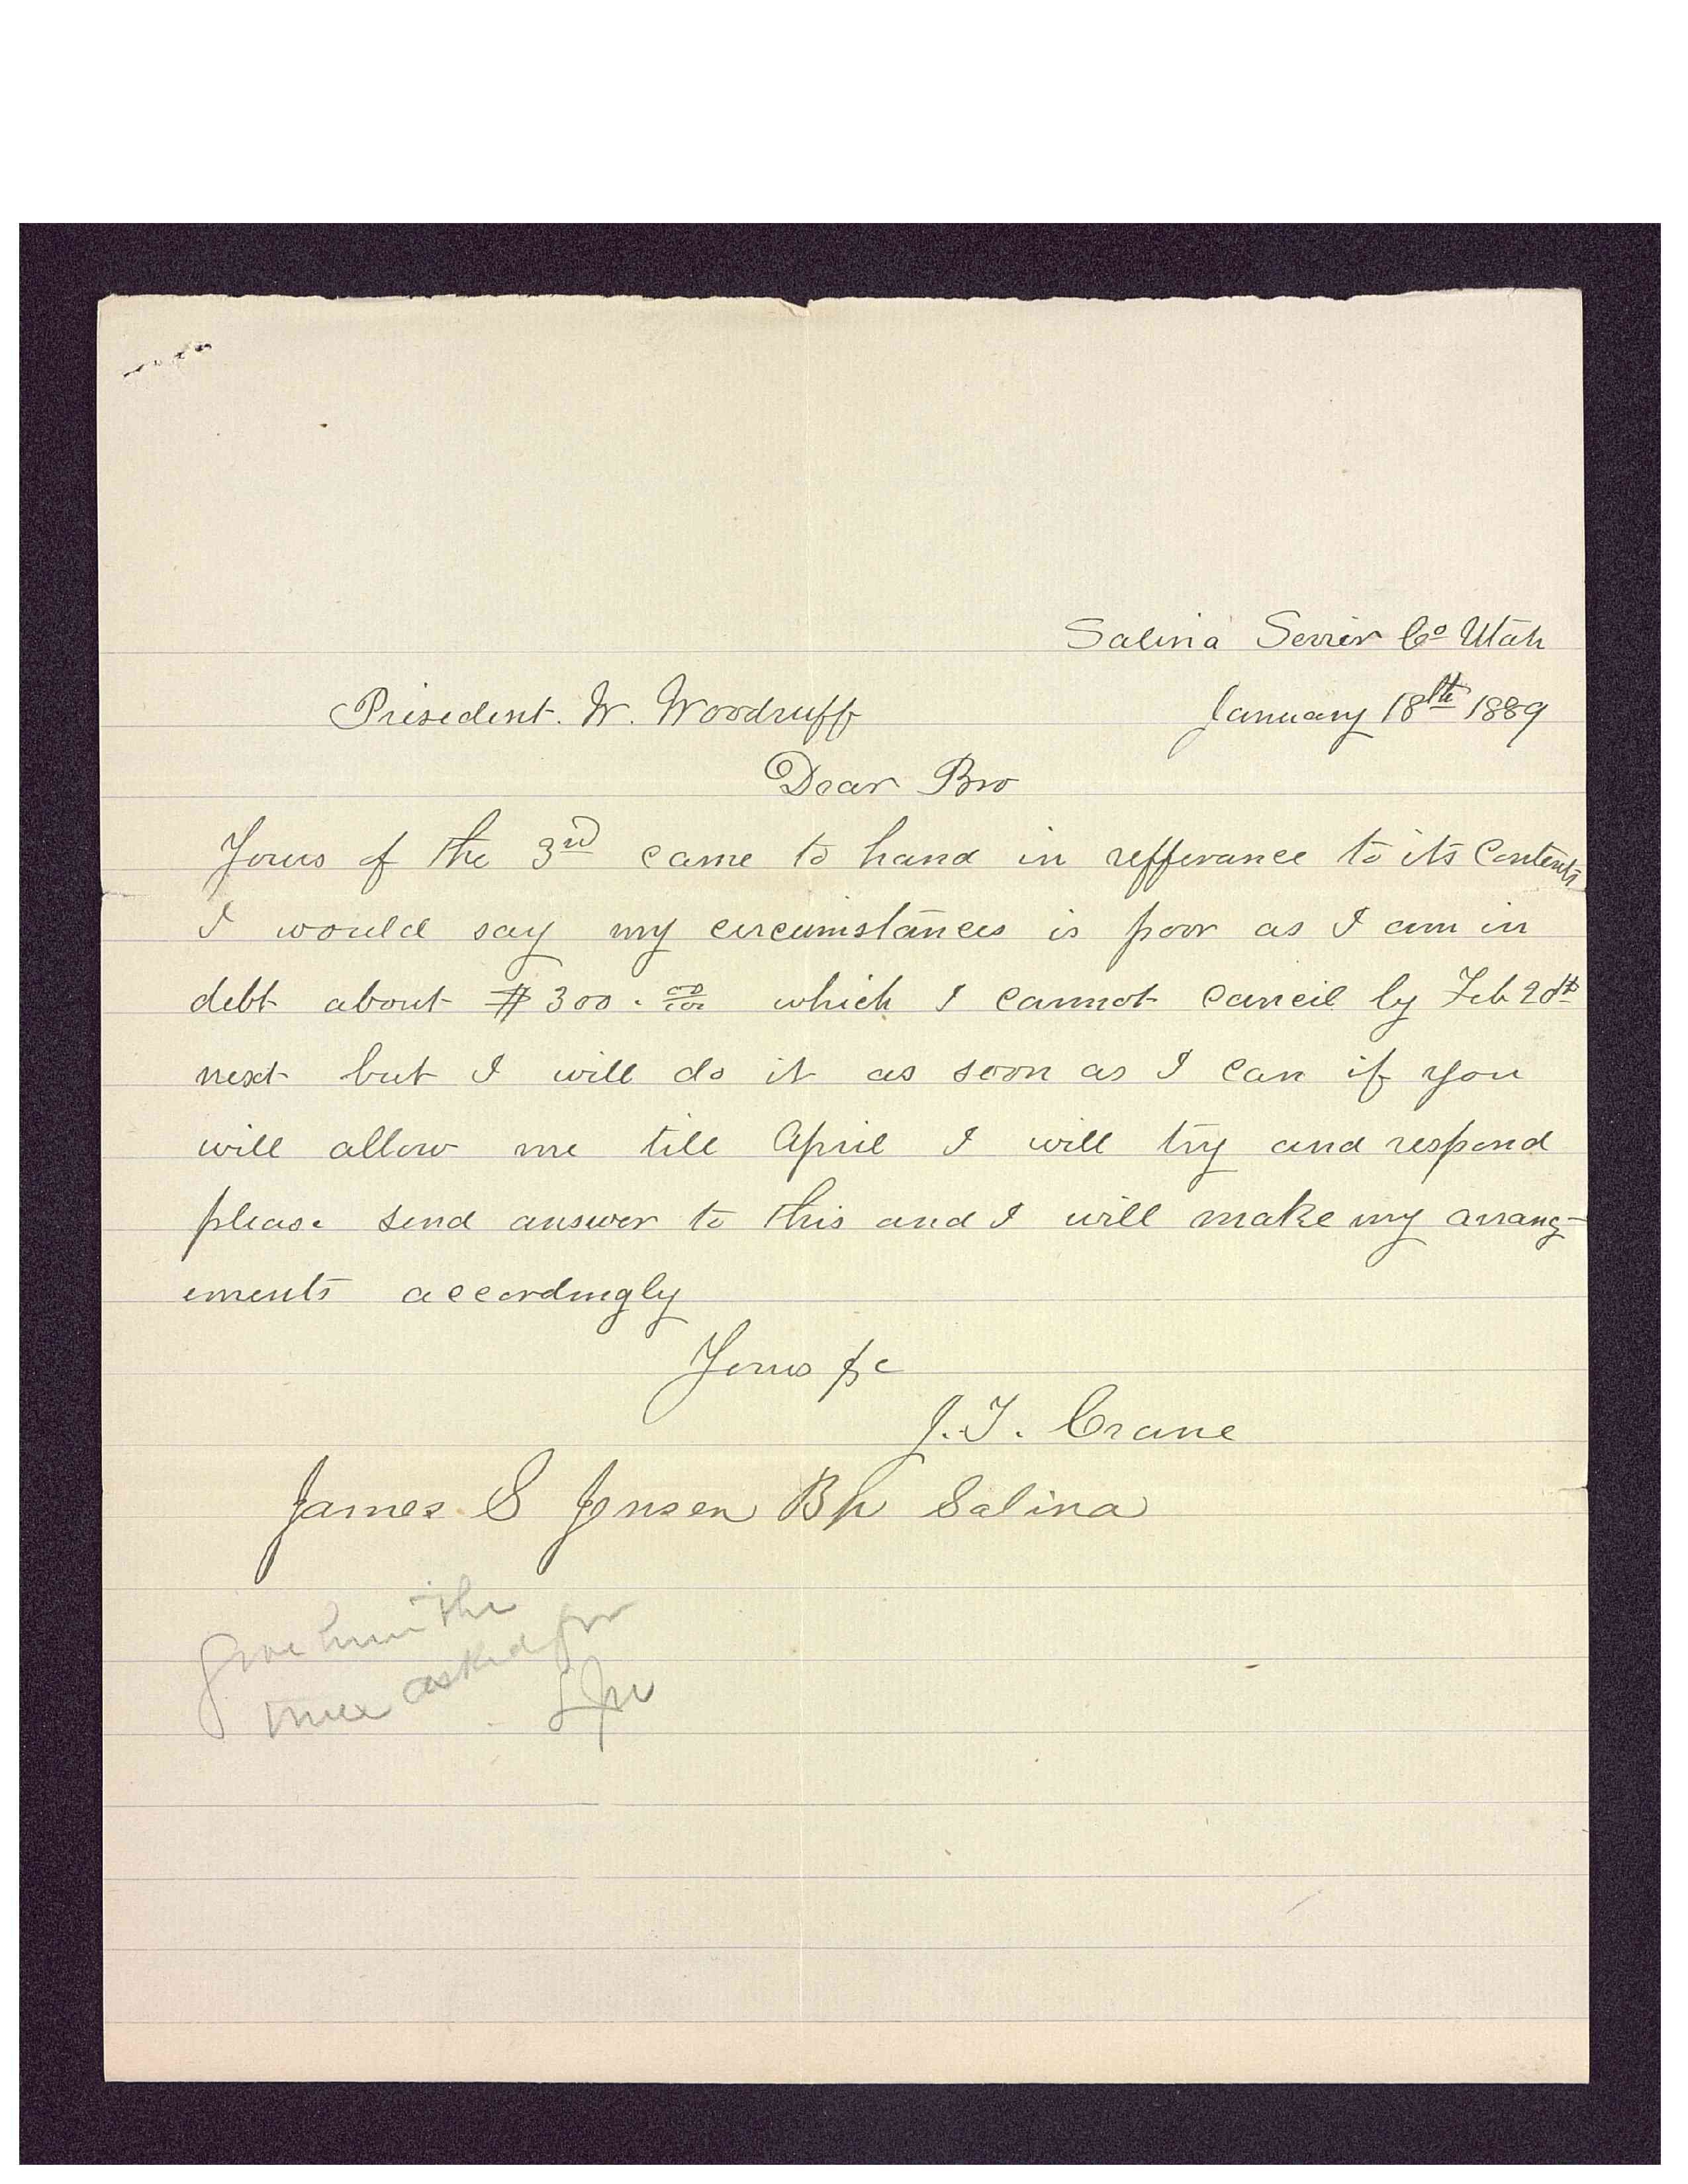 Salina Sevier Co Utah
President. W. Woodruff January 18th 1889
Dear Bro
Yours of the 3rd came to hand in refferance to its Contents
I would say my circumstances is poor as I am in
debt about $300.00/100 which I cannot cancil by Feb 20th
next but I will do it as soon as I can if you
will allow me till April I will try and respond
please send answer to this and I will make my arrang-
ements accordingly
Yours &c
J. T. Crane
James S Jensen Bp Salina
Give him the
time asked for